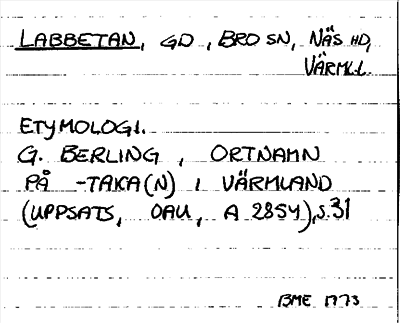 LABBETAN, GD, BRO SN, NÄS HD,
VÄRML.L.
ETYMOLOGI.
G. BERLING, ORTNAMN
PÅ -TAKA(N) I VÄRMLAND
(UPPSATS, OAU, A 2854), S.31
BME 1773